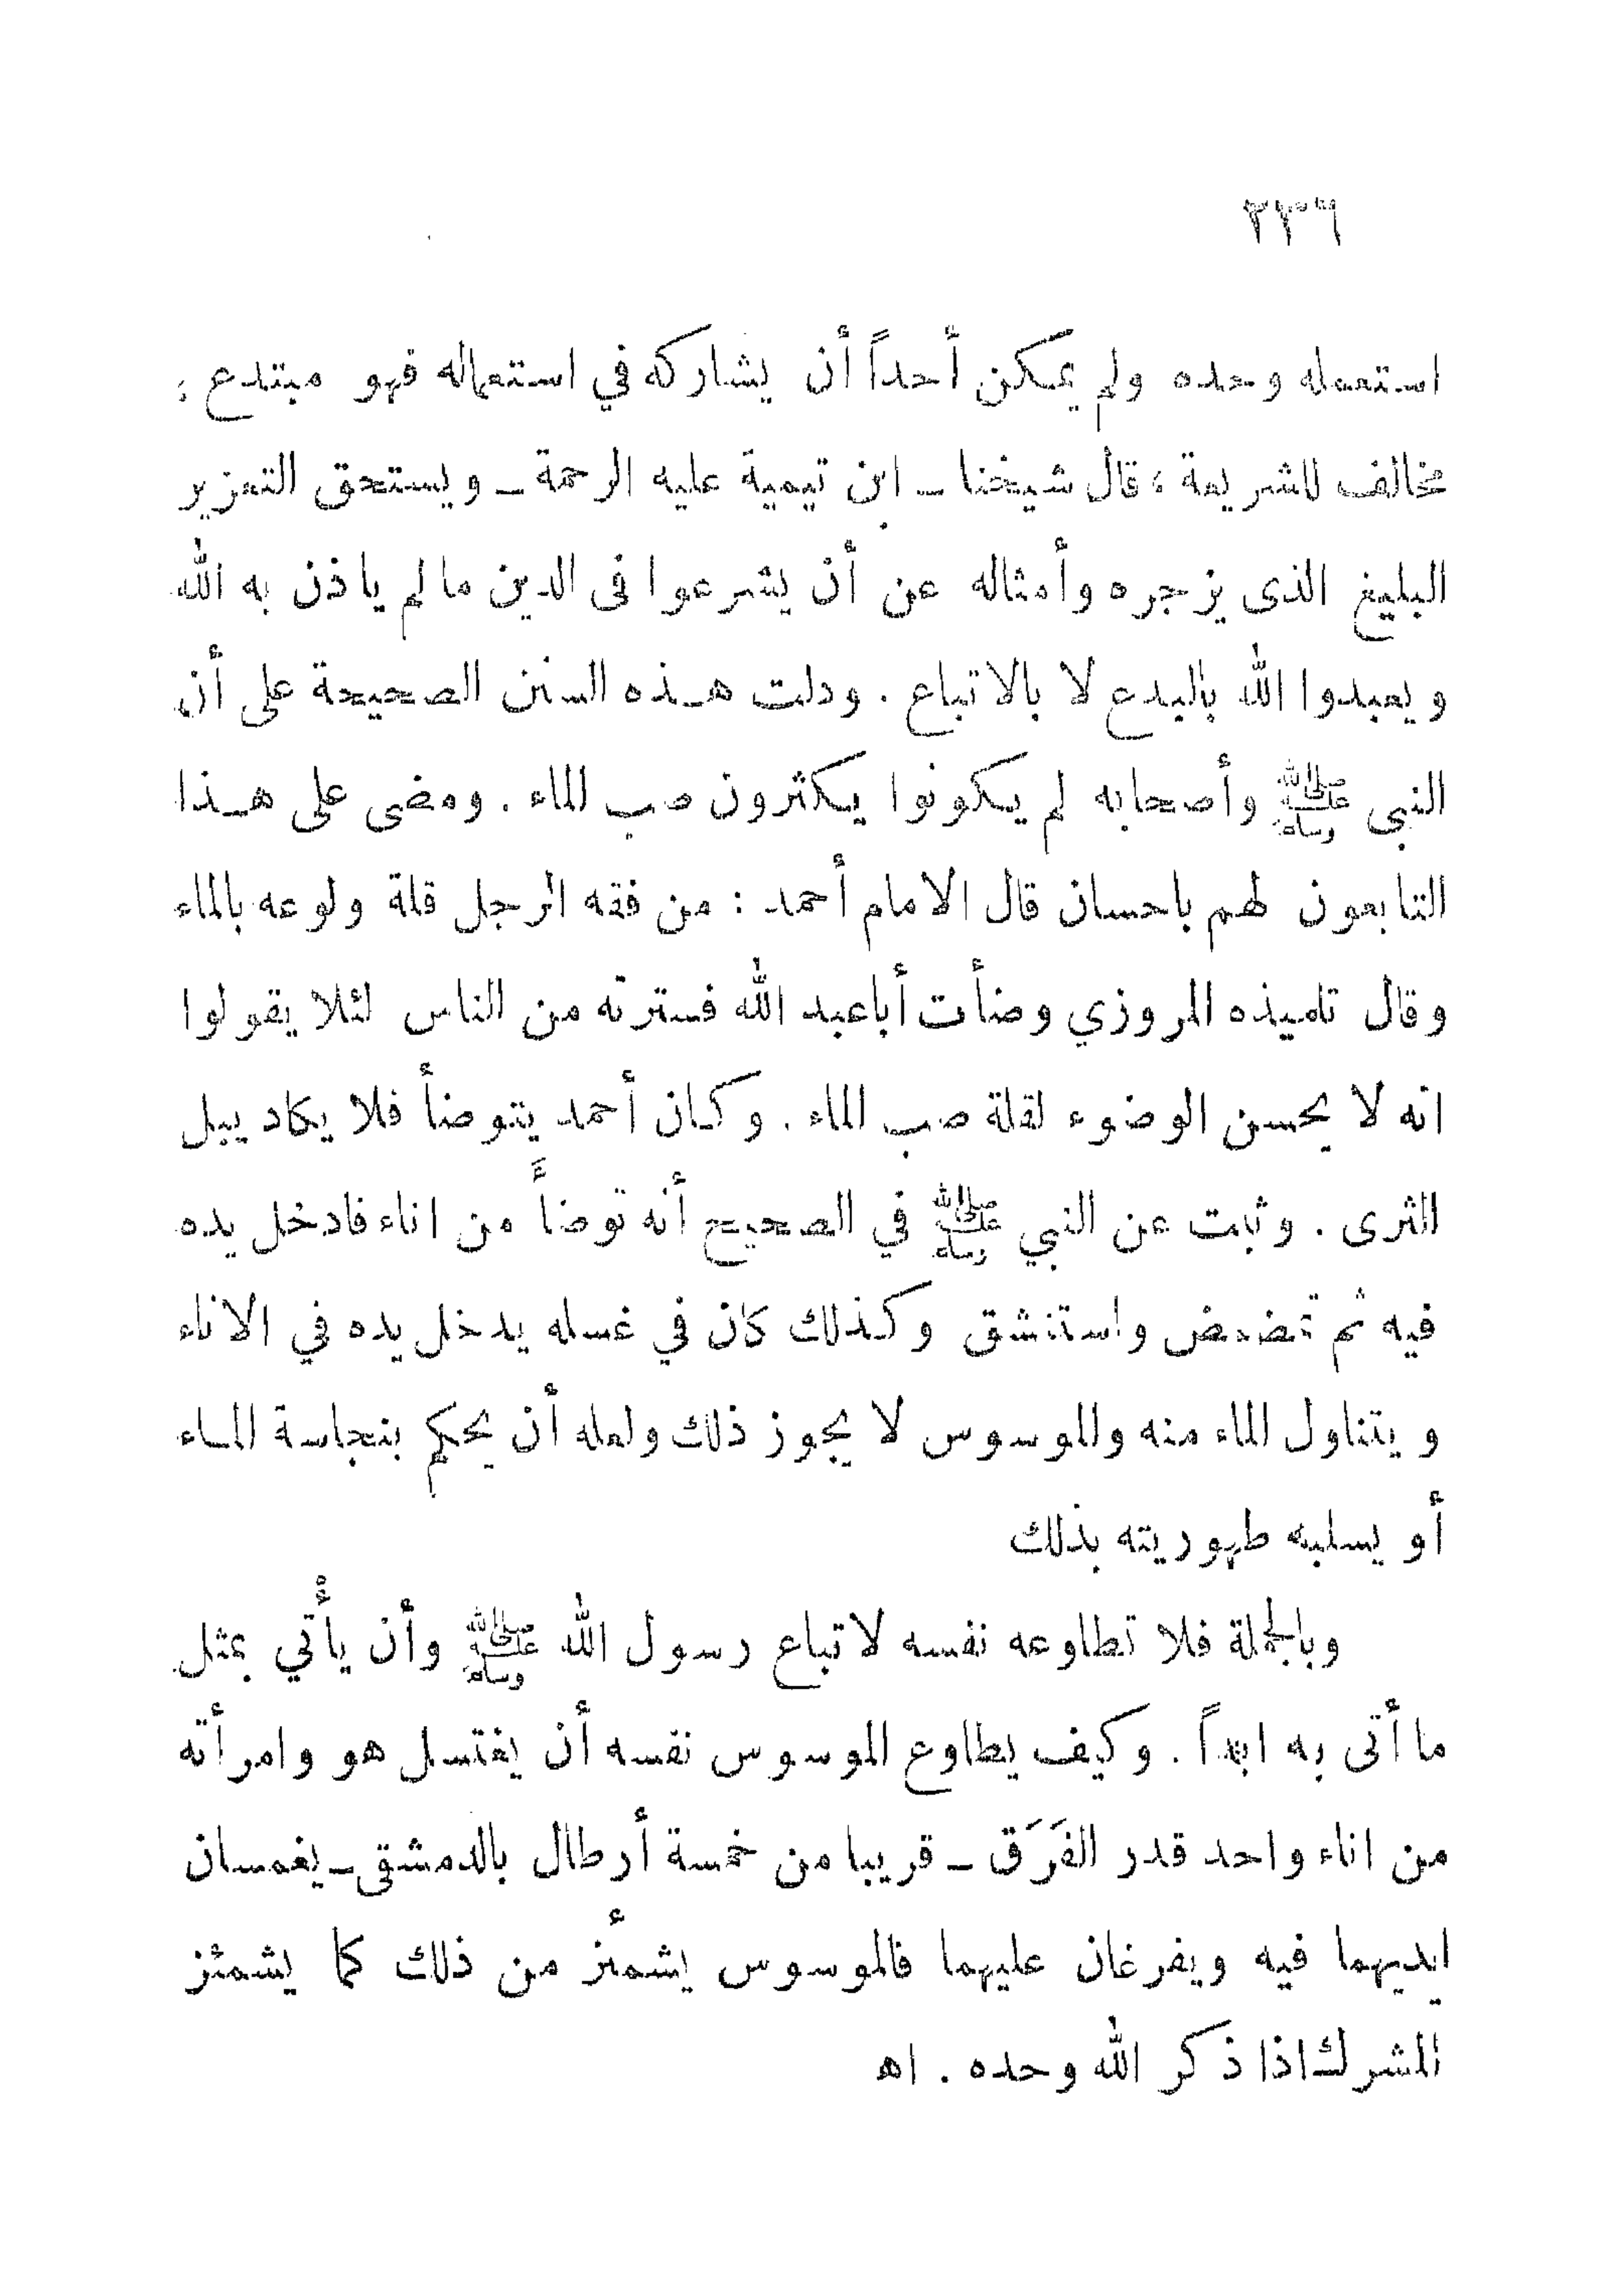 ٢٣٦
استعمله وحده ولم يمكن أحداً أن يشاركه في استعماله فهو مبتدع ،
مخالف للشريعة ، قال شيخنا ــ ابن تيمية عليه الرحمة ــ ويستحق التعزير
البليغ الذى يزجره وأمثاله عن أن يشرعوا فى الدين ما لم ياذن به الله
ويعبدوا الله بالبدع لا بالاتباع . ودلت هـذه السنن الصحيحة على أن
النبى ﷺ وأصحابه لم يـكونوا يـكثرون صب الماء . ومضى على هـذا
التابعون لهم باحسان قال الامام أحمد : من فقه الرجل قلة ولوعه بالماء
وقال تلميذه المروزي وضأت أبا عبد الله فسترته من الناس لئلا يقولوا
انه لا يحسن الوضوء لقلة صب الماء . وكـان أحمد يتوضأ فلا يكاد يبل
الثرى . وثبت عن النبي ﷺ في الصحيح أنه توضأَ من اناء فادخل يده
فيه ثم تمضمض واستنشق وكـذلك كان في غسله يدخل يده في الاناء
ويتناول الماء منه والموسوس لا يجوز ذلك ولعله أن يحكم بنجاسة المـاء
أو يسلبه طهوريته بذلك
وبالجملة فلا تطاوعه نفسه لاتباع رسول الله ﷺ وأن يأْتي بمثل
ما أتى به ابداً . وكيف يطاوع الموسوس نفسه أن يغتسل هو وامرأته
من اناء واحد قدر الفَرَق ــ قريبا من خمسة أرطال بالدمشقى ــ يغمسان
ايديهما فيه ويفرغان عليهما فالموسوس يشمئز من ذلك كما يشمئز
المشرك اذا ذكر الله وحده . اهـ